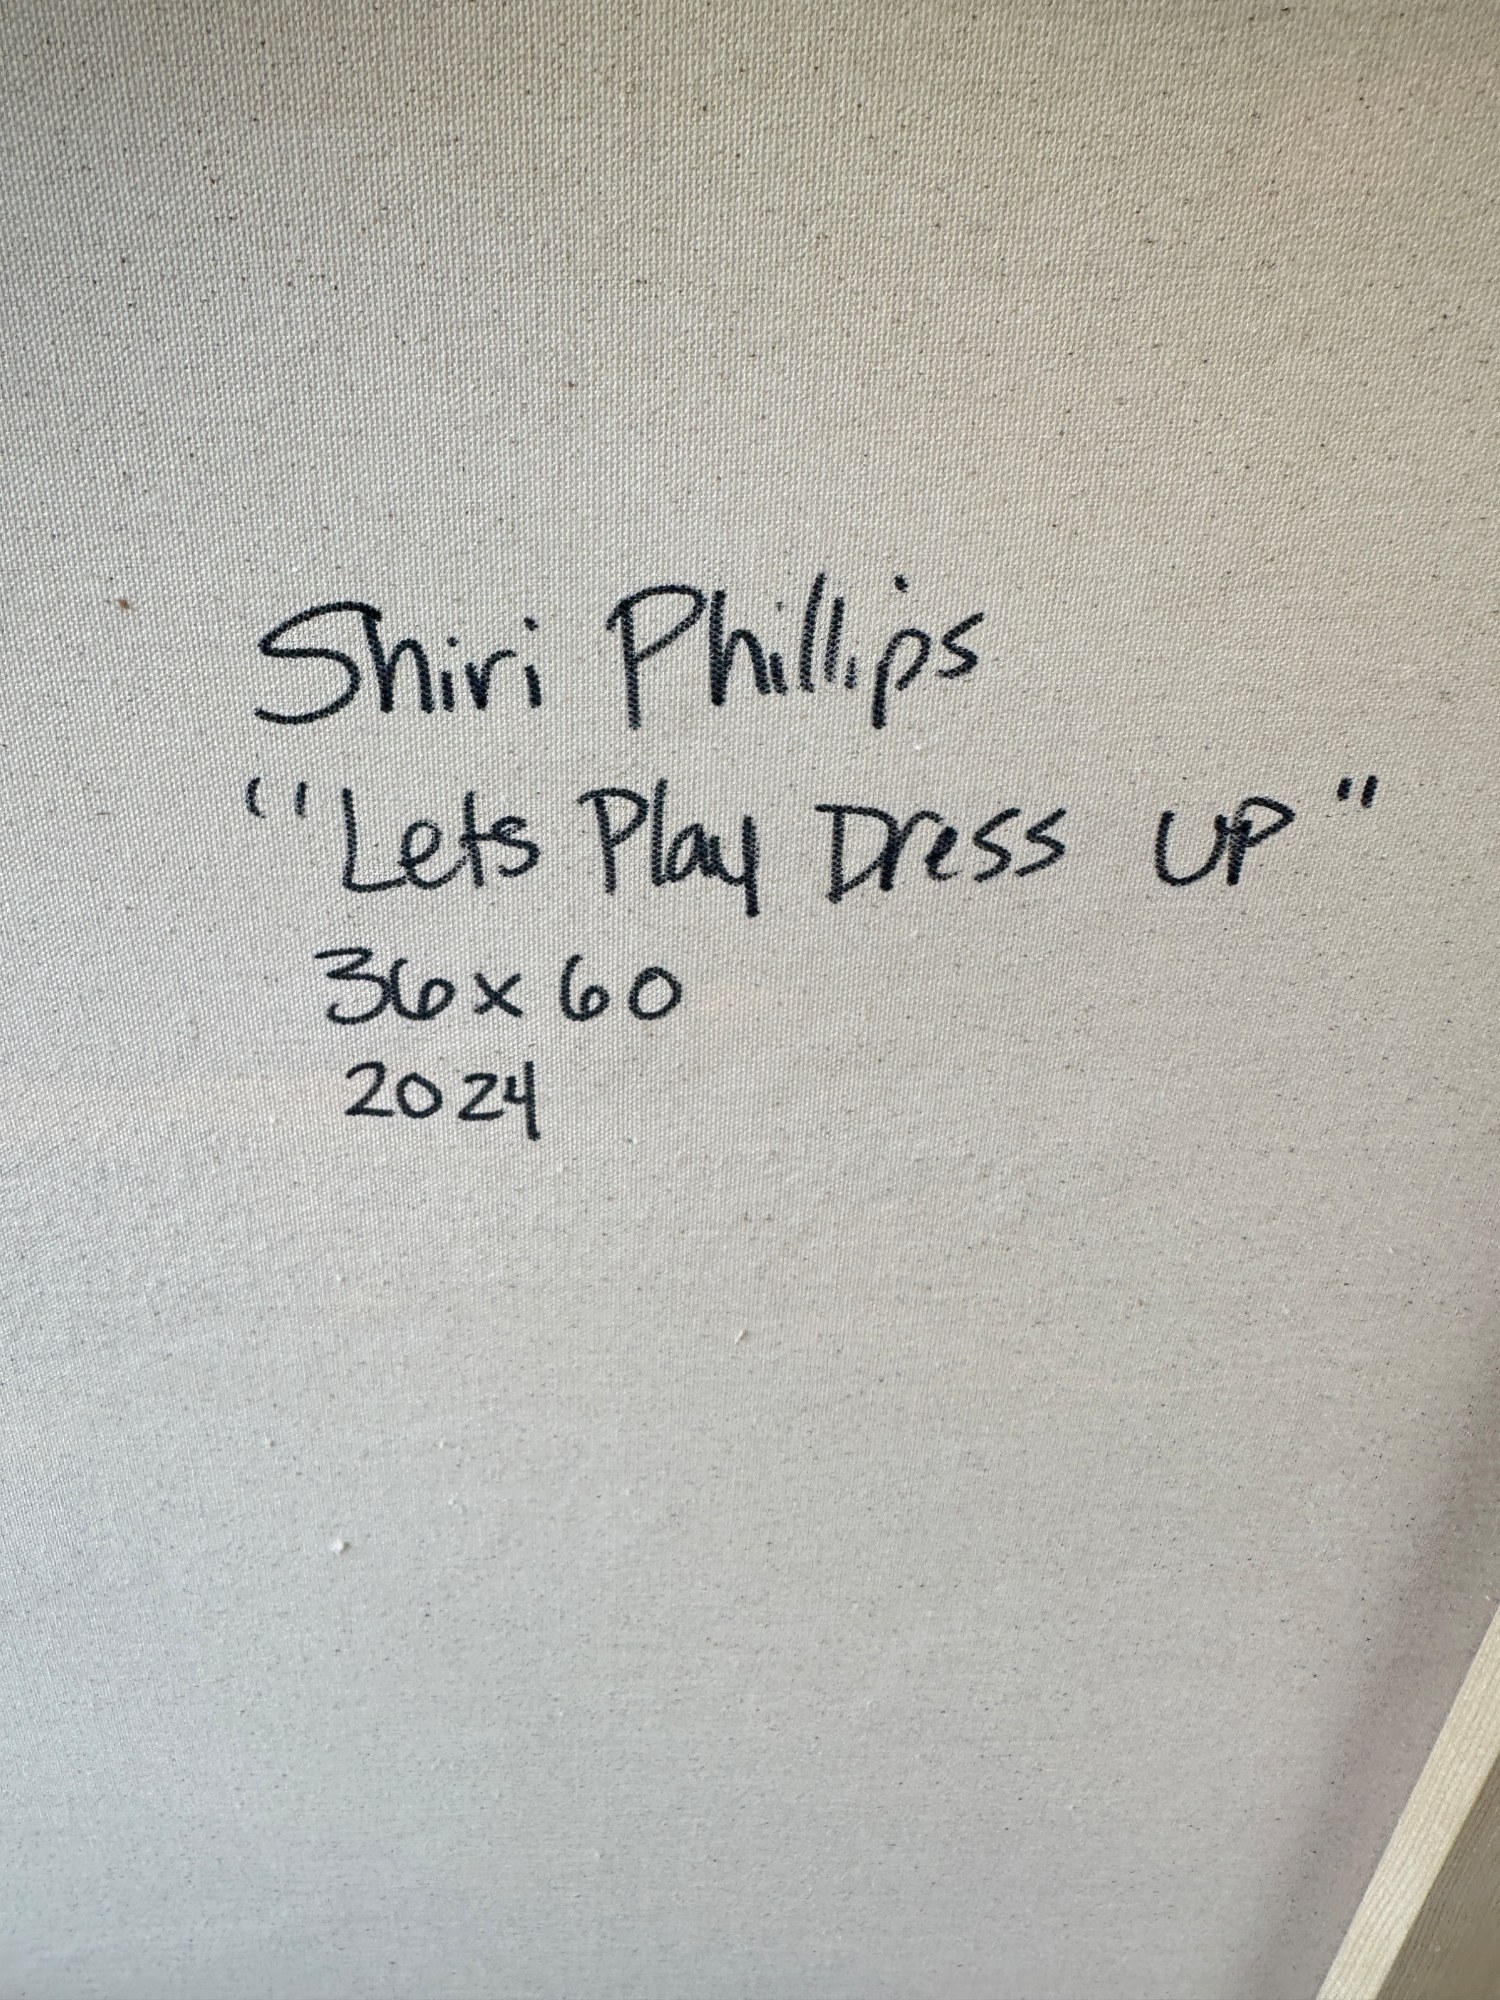 Shiri Phillips
"Lets Play Dress UP"
36x60
2024